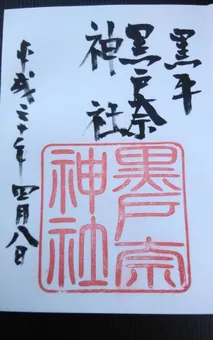 黒平
黒戸奈
神社
平成三十年四月八日
黒戸奈
神社